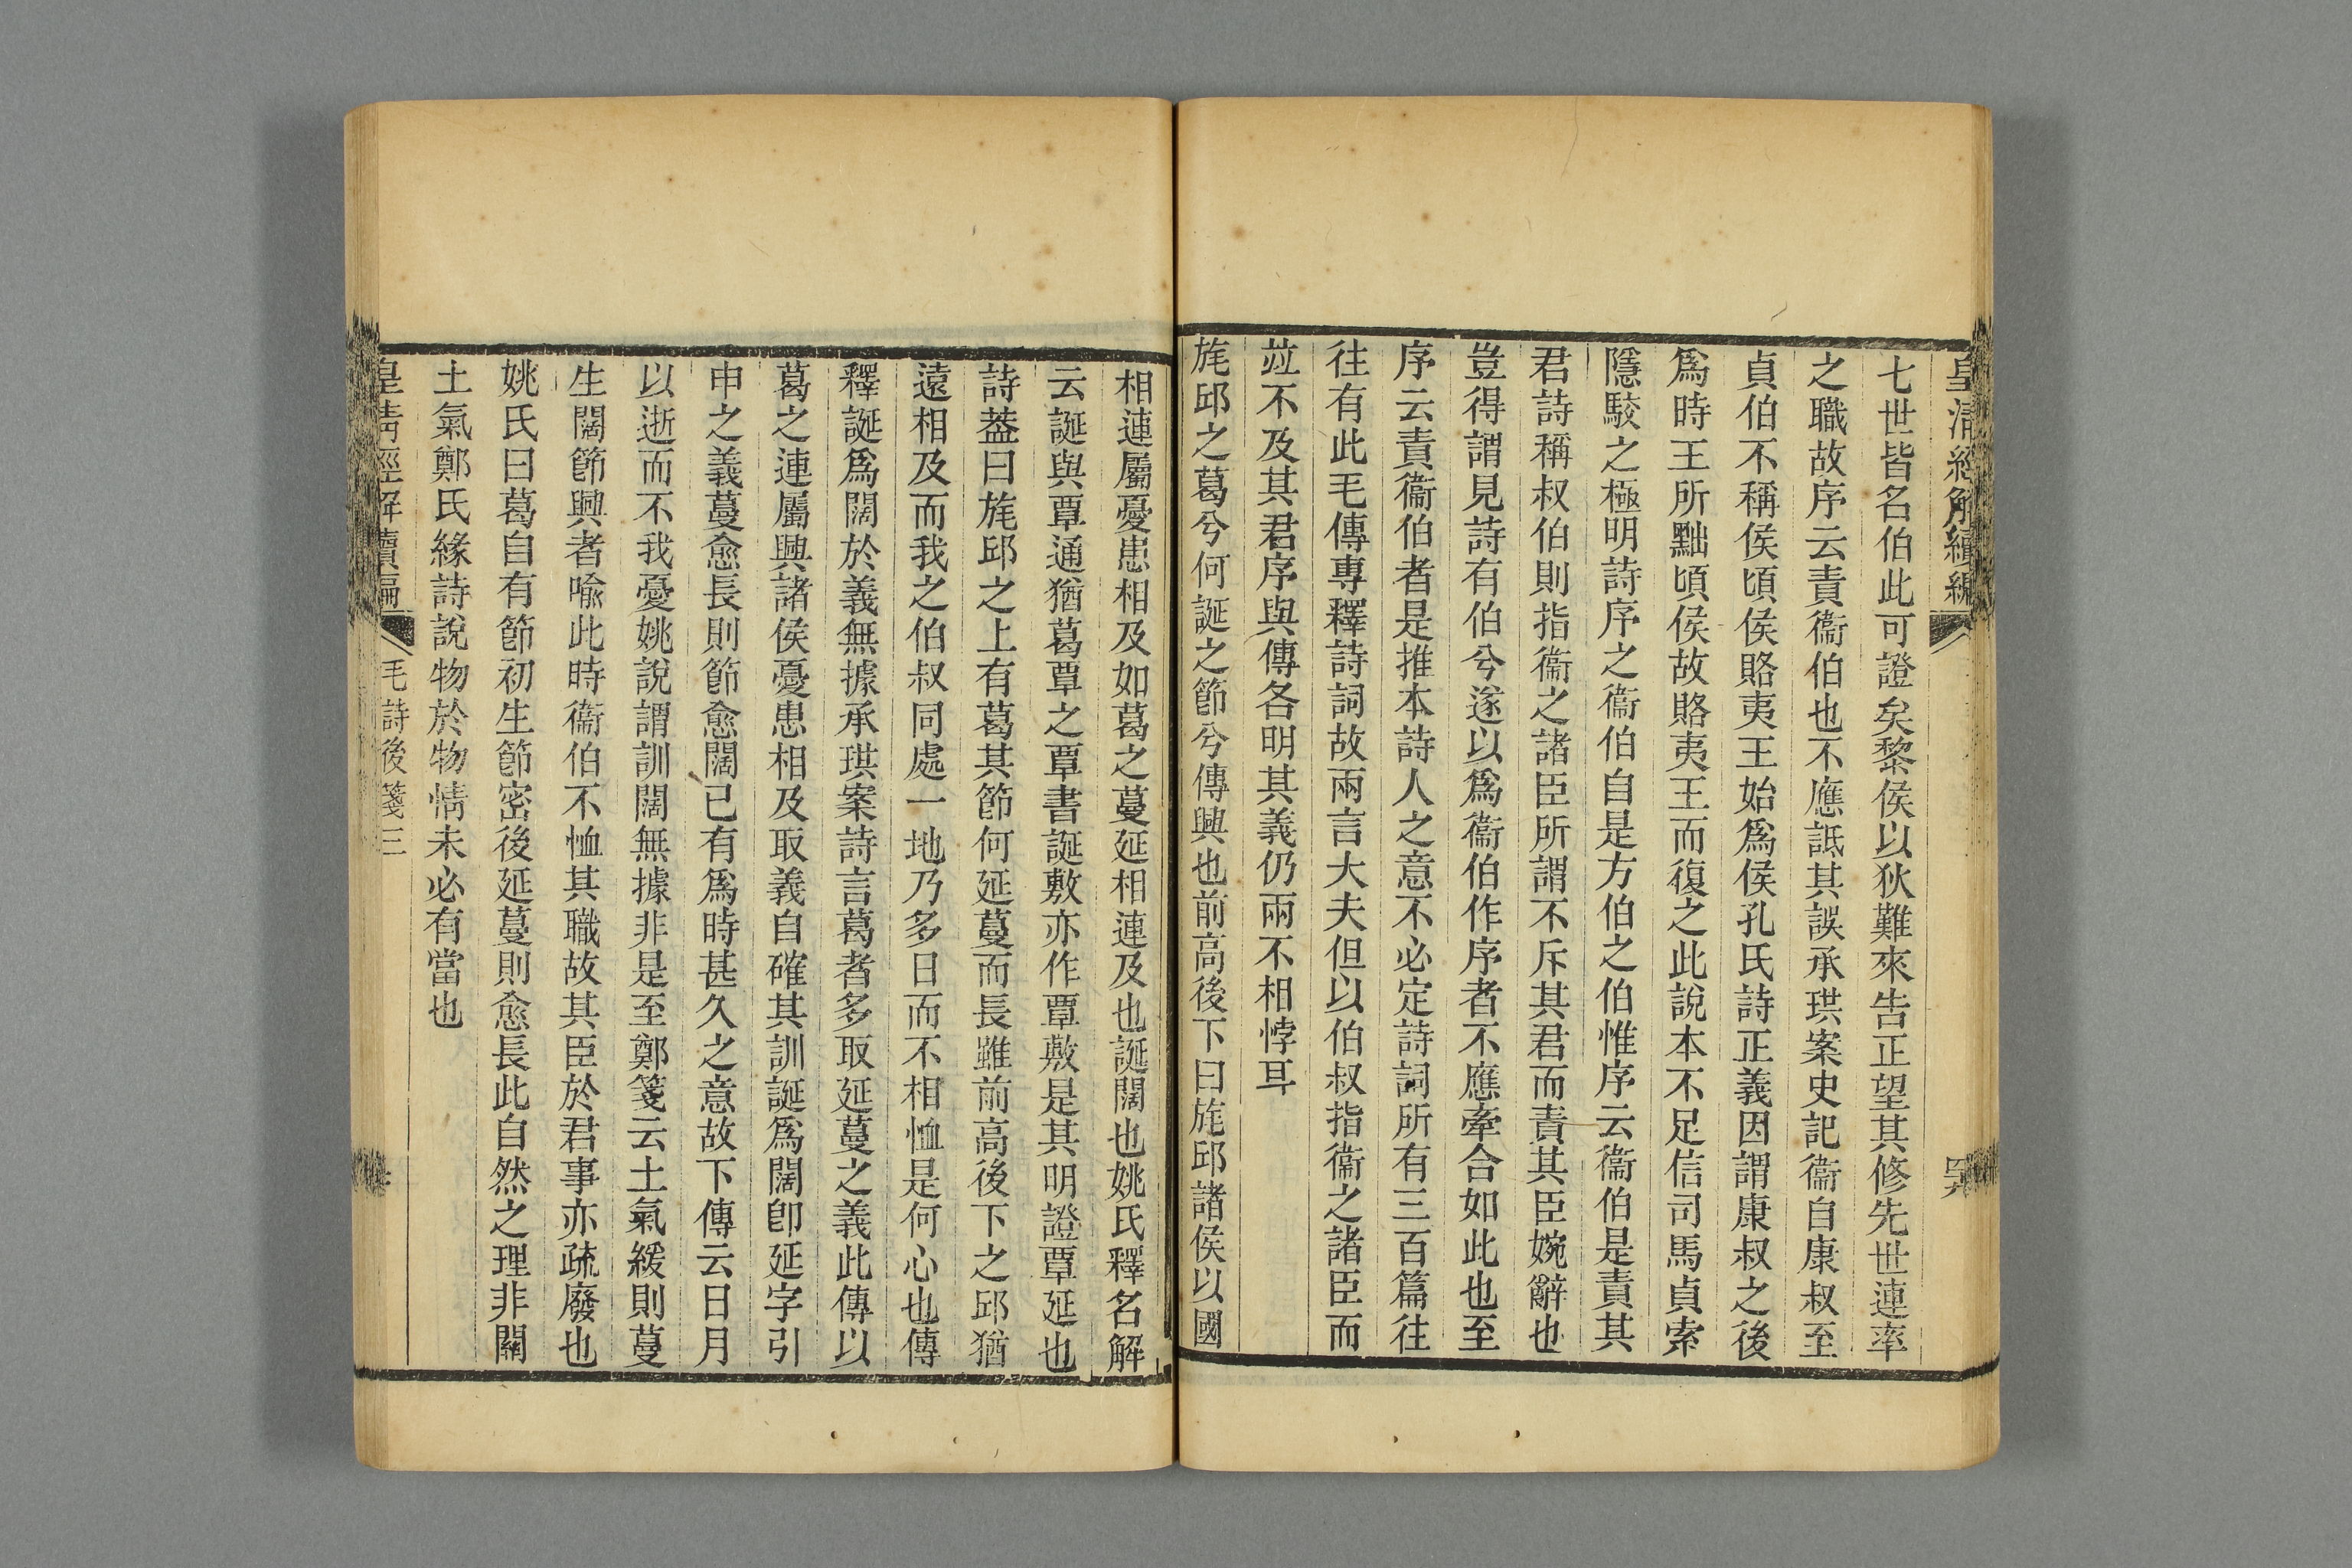 皇清經解續編
七世皆名伯此可證矣黎侯以狄難來告正望其修先世連率
之職故序云責衞伯也不應詆其誤承珙案史記衞自康叔至
貞伯不稱侯頃侯賂夷王始爲侯孔氏詩正義因謂康叔之後
爲時王所黜頃侯故賂夷王而復之此說本不足信司馬貞索
隱駮之極明詩序之衞伯自是方伯之伯惟序云衞伯是責其
君詩稱叔伯則指衞之諸臣所謂不斥其君而責其臣婉辭也
豈得謂見詩有伯兮遂以爲衞伯作序者不應牽合如此也至
序云責衞伯者是推本詩人之意不必定詩詞所有三百篇往
往有此毛傳專釋詩詞故兩言大夫但以伯叔指衞之諸臣而
竝不及其君序與傳各明其義仍兩不相悖耳
旄邱之葛兮何誕之節兮傳興也前高後下曰旄邱諸侯以國
相連屬憂患相及如葛之蔓延相連及也誕闊也姚氏釋名解
云誕與覃通猶葛覃之覃書誕敷亦作覃敷是其明證覃延也
詩葢曰旄邱之上有葛其節何延蔓而長雖前高後下之邱猶
遠相及而我之伯叔同處一地乃多日而不相恤是何心也傳
釋誕爲闊於義無據承珙案詩言葛者多取延蔓之義此傳以
葛之連屬興諸侯憂患相及取義自確其訓誕爲闊卽延字引
申之義蔓愈長則節愈闊已有爲時甚久之意故下傳云日月
以逝而不我憂姚說謂訓闊無據非是至鄭箋云土氣緩則蔓
生闊節興者喩此時衞伯不恤其職故其臣於君事亦疏廢也
姚氏曰葛自有節初生節密後延蔓則愈長此自然之理非關
土氣鄭氏緣詩說物於物情未必有當也
皇淸經解續編 毛詩後箋三